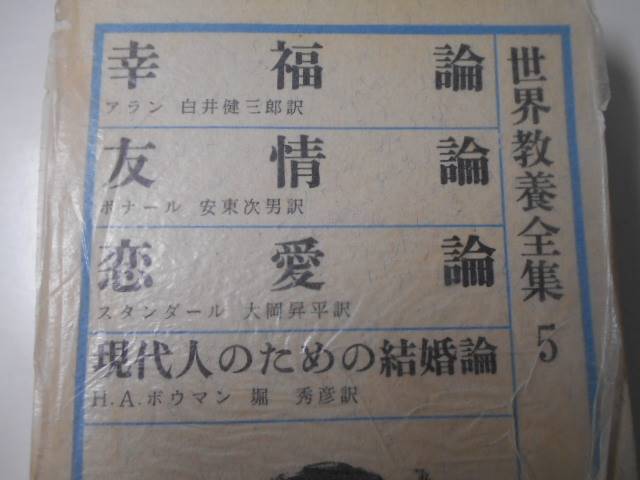 世界教養全集 5
幸福論
アラン 白井健三郎訳
友情論
ボナール 安東次男訳
恋愛論
スタンダール 大岡昇平訳
現代人のための結婚論
H.A.ボウマン 堀 秀彦訳